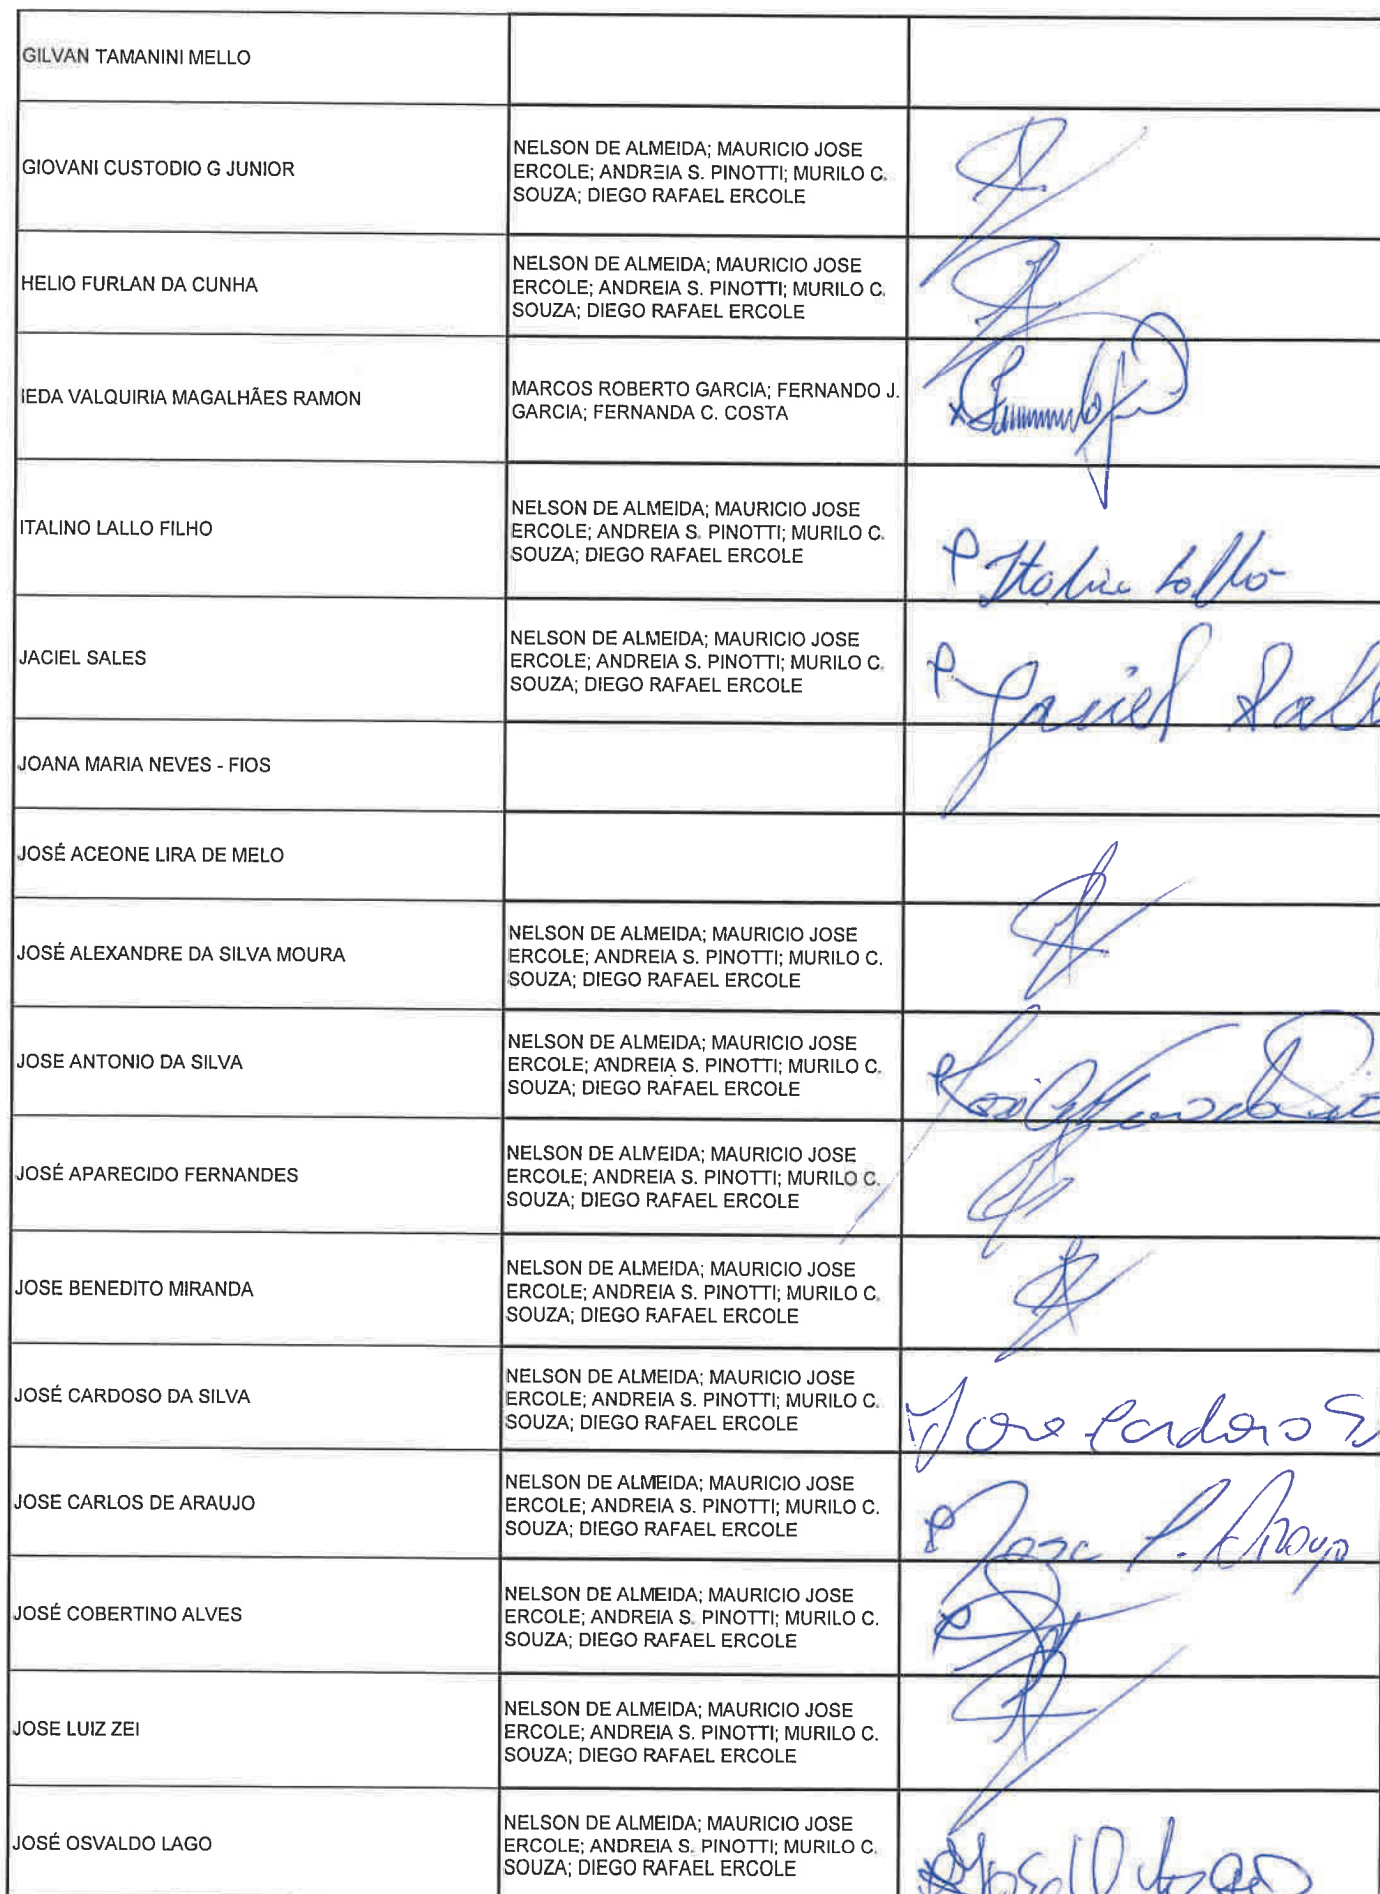 GILVAN TAMANINI MELLO
GIOVANI CUSTODIO G JUNIOR
NELSON DE ALMEIDA; MAURICIO JOSE
ERCOLE; ANDREIA S. PINOTTI; MURILO C.
SOUZA; DIEGO RAFAEL ERCOLE
HELIO FURLAN DA CUNHA
NELSON DE ALMEIDA; MAURICIO JOSE
ERCOLE; ANDREIA S. PINOTTI; MURILO C.
SOUZA; DIEGO RAFAEL ERCOLE
IEDA VALQUIRIA MAGALHÃES RAMON
MARCOS ROBERTO GARCIA; FERNANDO J.
GARCIA; FERNANDA C. COSTA
ITALINO LALLO FILHO
NELSON DE ALMEIDA; MAURICIO JOSE
ERCOLE; ANDREIA S. PINOTTI; MURILO C.
SOUZA; DIEGO RAFAEL ERCOLE
JACIEL SALES
NELSON DE ALMEIDA; MAURICIO JOSE
ERCOLE; ANDREIA S. PINOTTI; MURILO C.
SOUZA; DIEGO RAFAEL ERCOLE
Jaciel
JOANA MARIA NEVES - FIOS
JOSÉ ACEONE LIRA DE MELO
JOSÉ ALEXANDRE DA SILVA MOURA
NELSON DE ALMEIDA; MAURICIO JOSE
ERCOLE; ANDREIA S. PINOTTI; MURILO C.
SOUZA; DIEGO RAFAEL ERCOLE
JOSE ANTONIO DA SILVA
NELSON DE ALMEIDA; MAURICIO JOSE
ERCOLE; ANDREIA S. PINOTTI; MURILO C.
SOUZA; DIEGO RAFAEL ERCOLE
JOSÉ APARECIDO FERNANDES
NELSON DE ALMEIDA; MAURICIO JOSE
ERCOLE; ANDREIA S. PINOTTI; MURILO C.
SOUZA; DIEGO RAFAEL ERCOLE
JOSE BENEDITO MIRANDA
NELSON DE ALMEIDA; MAURICIO JOSE
ERCOLE; ANDREIA S. PINOTTI; MURILO C.
SOUZA; DIEGO RAFAEL ERCOLE
JOSÉ CARDOSO DA SILVA
NELSON DE ALMEIDA; MAURICIO JOSE
ERCOLE; ANDREIA S. PINOTTI; MURILO C.
SOUZA; DIEGO RAFAEL ERCOLE
Jose Cardoso
JOSE CARLOS DE ARAUJO
NELSON DE ALMEIDA; MAURICIO JOSE
ERCOLE; ANDREIA S. PINOTTI; MURILO C.
SOUZA; DIEGO RAFAEL ERCOLE
JOSÉ COBERTINO ALVES
NELSON DE ALMEIDA; MAURICIO JOSE
ERCOLE; ANDREIA S. PINOTTI; MURILO C.
SOUZA; DIEGO RAFAEL ERCOLE
JOSE LUIZ ZEI
NELSON DE ALMEIDA; MAURICIO JOSE
ERCOLE; ANDREIA S. PINOTTI; MURILO C.
SOUZA; DIEGO RAFAEL ERCOLE
JOSÉ OSVALDO LAGO
NELSON DE ALMEIDA; MAURICIO JOSE
ERCOLE; ANDREIA S. PINOTTI; MURILO C.
SOUZA; DIEGO RAFAEL ERCOLE